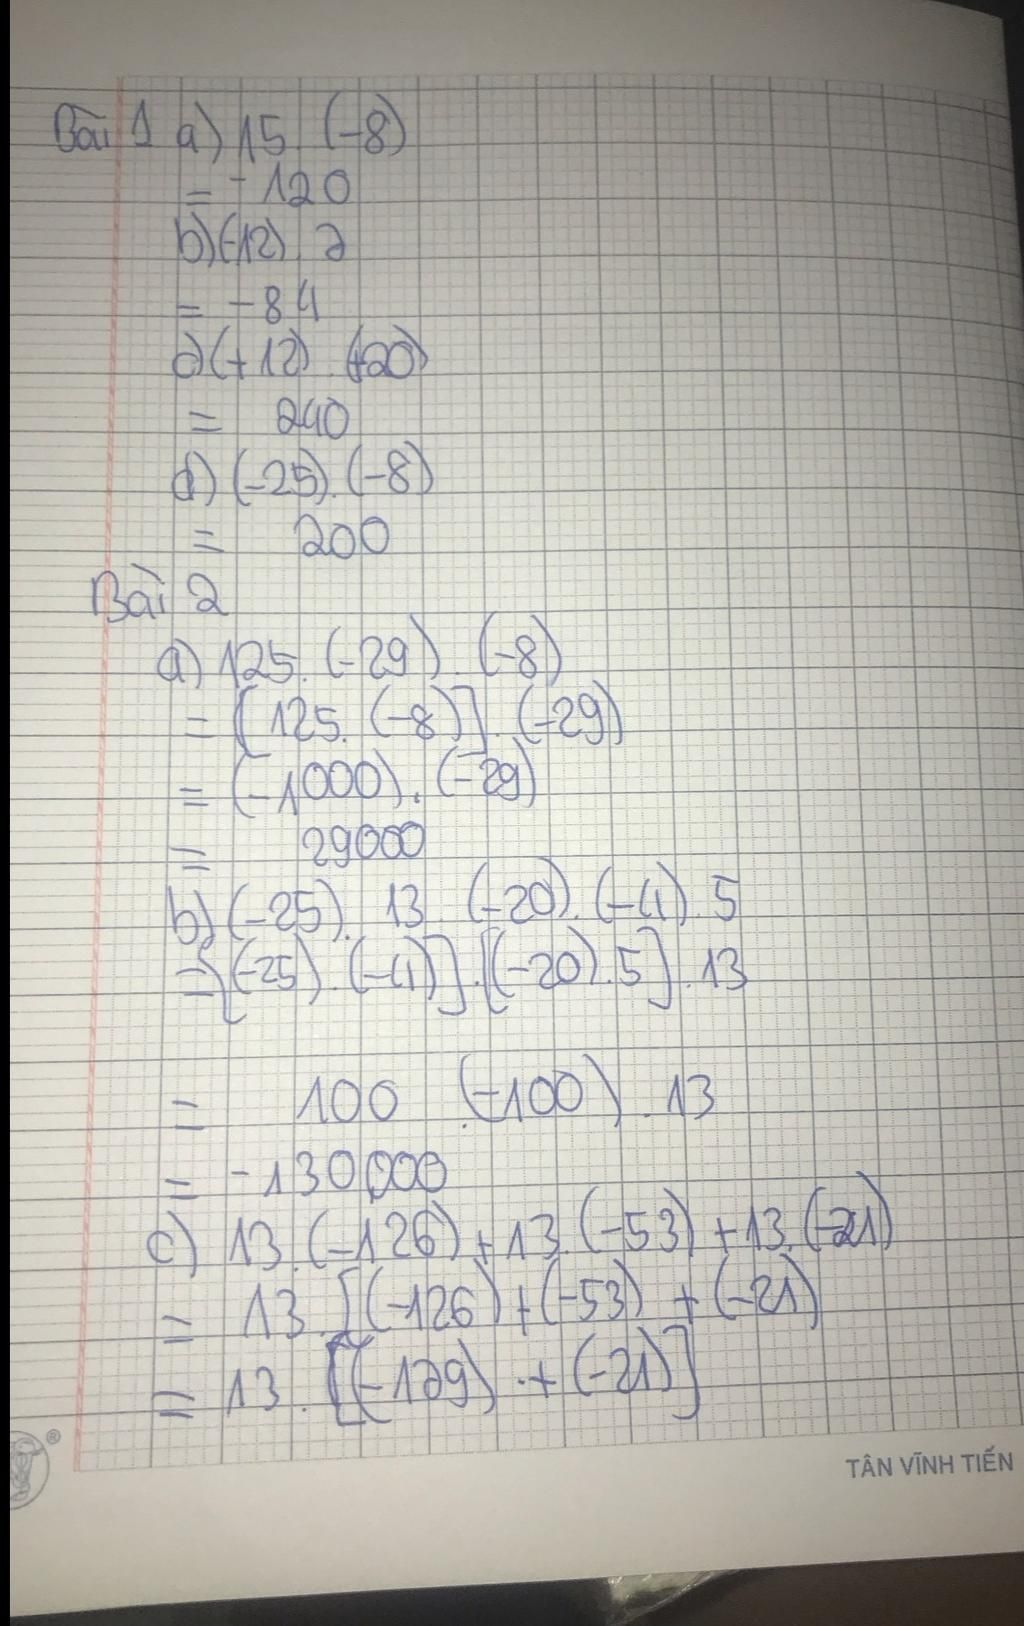 Bài 1 a) 15. (-8)
= -120
b) (-12). 7
= -84
c) (+12). (+20)
= 240
d) (-25). (-8)
= 200
Bài 2
a) 125. (-29). (-8)
= [125. (-8)]. (-29)
= (-1000). (-29)
= 29000
b) (-25). 13. (-20). (-4). 5
= [(-25). (-4)]. [(-20). 5]. 13
= 100 . (-100). 13
= -130000
c) 13. (-126) + 13. (-53) + 13. (-21)
= 13. [(-126) + (-53) + (-21)
= 13. [(-179) + (-21)]
®
TÂN VĨNH TIẾN